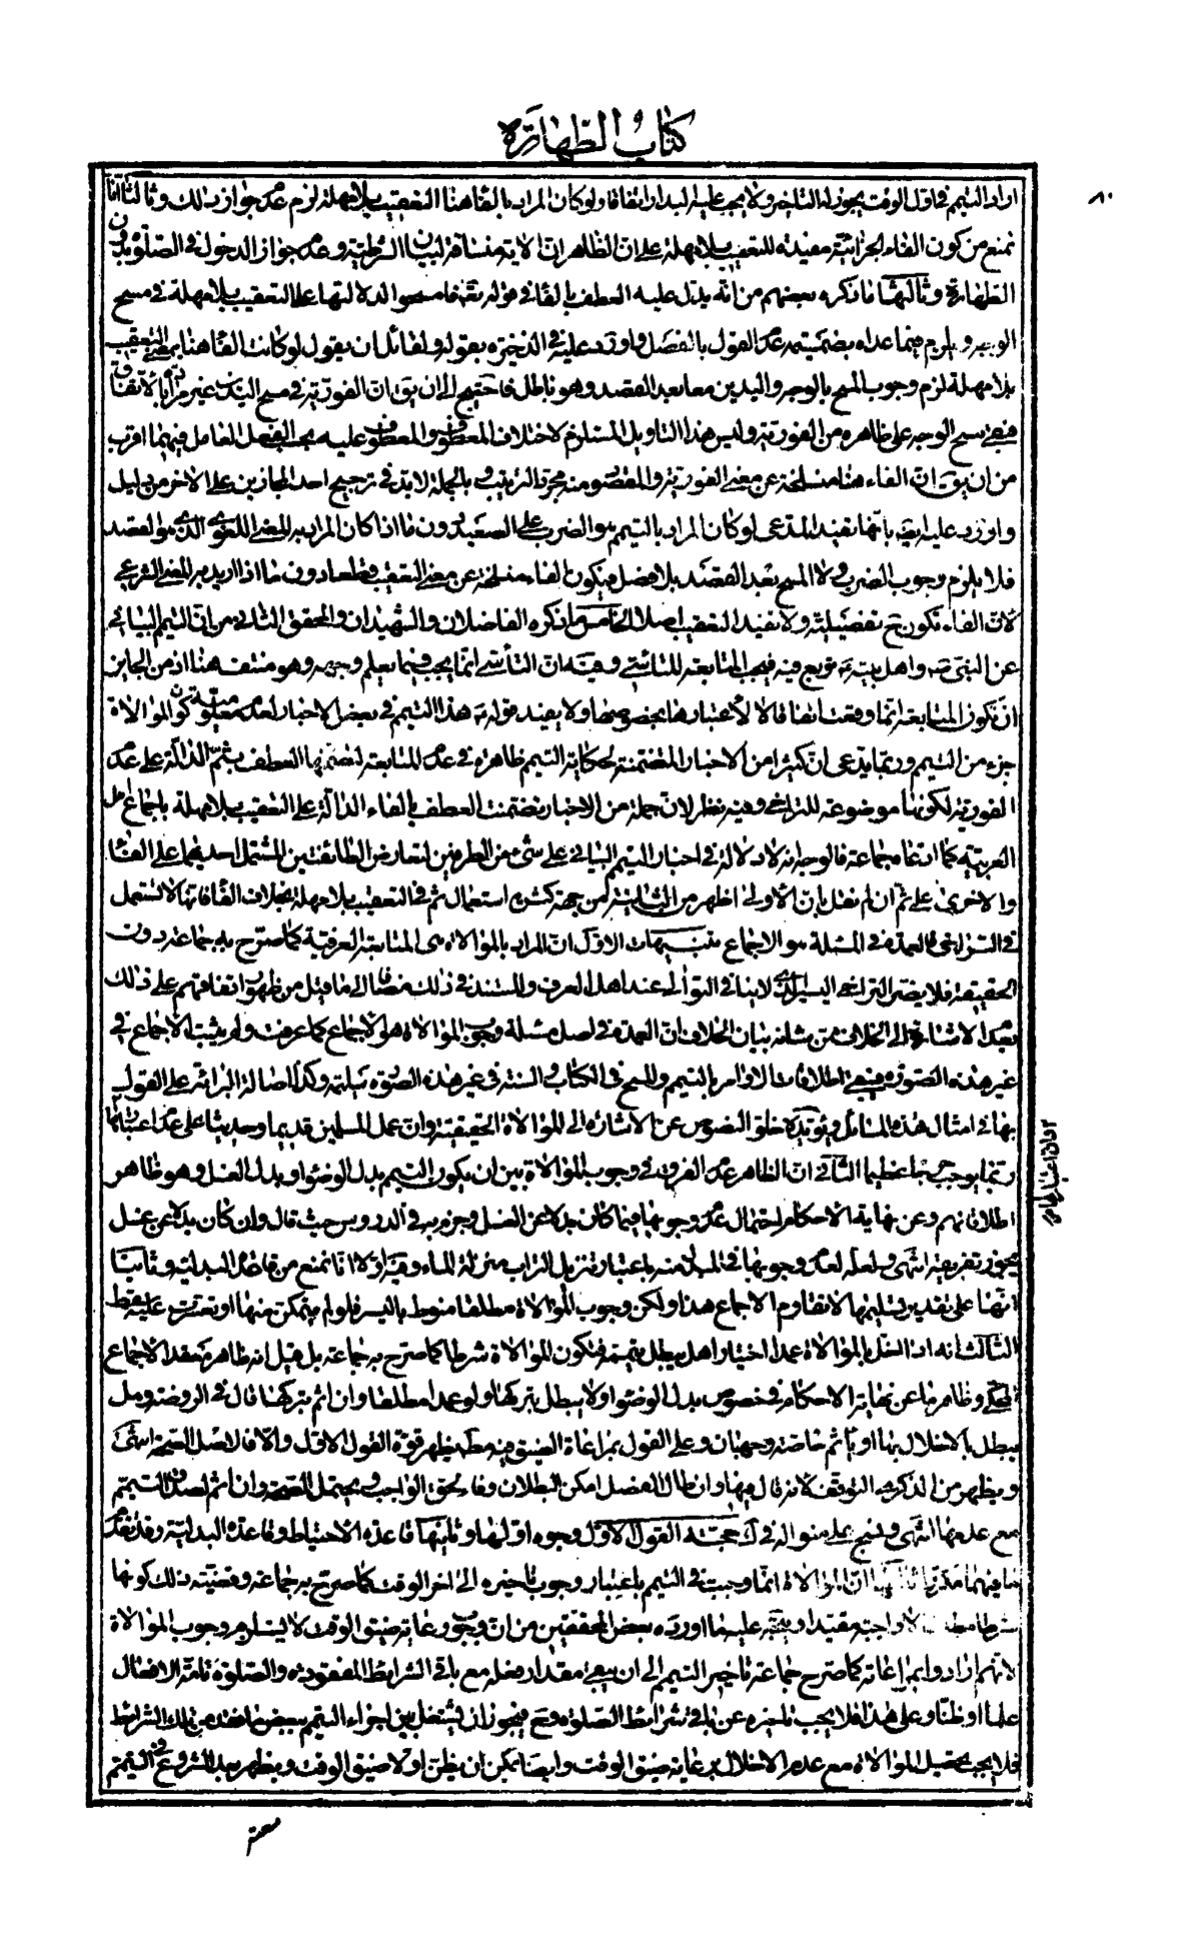 كتاب الطهارة
٨٠
اراد التيمم فى اول الوقت يجوز له التاخير ولا يجب عليه البدار اتفاقا ولو كان المراد بالفا هنا التعقيب بلا مهلة لزم عدم جواز ذلك وثالثا انا
نمنع من كون الفاء الجزائية مفيدة للتعقيب بلا مهلة على ان الظاهر ان الاية مساقة لبيان الشرطية وعدم جواز الدخول فى الصلوة بدون
الطهارة وثالثها ما ذكره بعضهم من انه يدل عليه العطف بالفا فى قوله تعه فامسحوا لدلالتها على التعقيب بلا مهلة فى مسح
الوجه ويلزم فيما عداه بضميمة عدم القول بالفصل واورد عليه فى الذخيرة بقوله ولقائل ان يقول لو كانت الفا هنا بمعنى التعقيب
بلا مهلة لزم وجوب المسح بالوجه واليدين معا بعد القصد وهو باطل فاحتيج الى ان يق ان الفورية فى مسح اليدين غير مراد بالاتفاق
فبقى مسح الوجه على ظاهره من الفورية وليس هذا التاويل المستلزم لاختلاف المعطوف والمعطوف عليه بحسب الفعل العامل فيهما اقرب
من ان يق ان الفاء هنا منسلخة عن معنى الفورية والمقصود منه مجرد الترتيب وبالجملة لابد فى ترجيح احد المجازين على الاخر من دليل
واورد عليه ايضه بانها تفيد المدعى لو كان المراد بالتيمم هو الضرب على الصعيد دون ما اذا كان المراد به المعنى اللغوى الذى هو القصد
فلا يلزم وجوب الضرب ولا المسح بعد القصد بلا فصل فيكون الفاء منسلخة عن معنى التعقيب قطعا دون ما اذا اريد به المعنى الشرعى
لان الفاء تكون ح تفصيلية ولا تفيد التعقيب اصلا الخامس ما ذكره الفاضلان والشهيدان والمحقق الثانى من ان التيمم البيانى
عن النبى ص واهل بيته ع توبع فيه فيجب المتابعة للتاسى وفيه ان التأسى انما يجب فيما يعلم وجهه وهو منتف هنا اذ من الجايز
ان تكون المتابعة انما وقعت اتفاقا لا لاعتبارها بخصوصها ولا يفيد قوله ع هذا التيمم فى بعض الاخبار لعدم معلومية كون الموالاة
جزء من التيمم وربما يدعى ان كثيرا من الاخبار المتضمنة لحكاية التيمم ظاهرة فى عدم المتابعة لتضمنها العطف بثم الدالة على عدم
الفورية لكونها موضوعة للتراخى وفيه نظر لان جملة من الاخبار تضمنت العطف بالفاء الدالة على التعقيب بلا مهلة باجماع اهل
العربية كما ادعاه جماعة فالوجه انه لا دلالة فى اخبار التيمم البيانى على شئ من الطرفين لتعارض الطائفتين المشتمل احديهما على الفا
والاخرى على ثم ان لم نقل بان الاولى اظهر من الثانية من جهة كثرة استعمال ثم فى التعقيب بلا مهلة بخلاف الفا فانها لا تستعمل
فى التراخى فالعمدة فى المسئلة هو الاجماع تنبيهات الاول ان المراد بالموالاة هى المتابعة العرفية كما صرح به جماعة دون
الحقيقة فلا يضر التراخى اليسير الذى لا ينافى التوالى عند اهل العرف والمستند فى ذلك مضافا الى ما قيل من ظهور اتفاقهم على ذلك
بعد الاشارة الى الخلاف من شانه بيان الخلاف ان العمدة فى اصل مسئلة وجوب الموالاة هو الاجماع كما عرفت ولم يثبت الاجماع فى
غير هذه الصورة فيبقى اطلاقات الاوامر بالتيمم والمسح فى الكتاب والسنة فى غير هذه الصورة سليمة وكذا اصالة البرائة على القول
بها فى امثال هذه المسائل ويؤيده خلو النصوص عن الاشارة الى الموالاة الحقيقية وان عمل المسلمين قديما وحديثا على عدم اعتبارها
٢ وان اعتبارها
ربما يوجب حرجا عظيما الثانى ان الظاهر عدم الفرق فى وجوب الموالاة بين ان يكون التيمم بدل الوضوء او بدل الغسل وهو ظاهر
اطلاقاتهم وعن نهاية الاحكام احتمال عدم وجوبها فيما كان بدلا عن الغسل وجزم به فى الدروس حيث قال وان كان بدلا عن غسل
يجوز تفريقه انتهى ولعله لعدم وجوبها فى المبدل منه باعتبار تنزيل التراب منزلة الماء وفيه اولا انا نمنع من قاعدة البدلية وثانيا
انها على تقدير تسليمها لا تقاوم الاجماع هذا ولكن وجوب الموالاة مطلقا منوط باليسر فلو لم يتمكن منها او تعسرت عليه سقط
الثالث انه اذا اخل بالموالاة عمدا اختيارا هل يبطل تيممه فتكون الموالاة شرطا كما صرح به جماعة بل قيل انه ظاهر معقد الاجماع
المحكى وظاهر ما عن نهاية الاحكام فى خصوص بدل الوضوء او لا يبطل بتركها ولو عمدا مطلقا وان اثم بتركها قال فى الروضة وهل
يبطل بالاخلال بها او ياثم خاصة وجهان وعلى القول بمراعاة الضيق فيه مطلقا يظهر قوة القول الاول والا فالاصل الصحة انتهى
ويظهر من الذكرى التوقف لانه قال فيها وان طال الفصل امكن البطلان وفاء بحق الواجب ويحتمل الصحة وان اثم لصدق التيمم
مع عدمها انتهى ونسج على منواله فى ك حجة القول الاول وجوه اولها وثانيها قاعدة الاحتياط وقاعدة البدلية وقد تقدم
ما فيهما ان الموالاة انما وجبت فى التيمم باعتبار وجوب تاخيره الى اخر الوقت كما صرح به جماعة وقضيته ذلك كونها
شرطا لا واجبة مقيدا ويتجه عليه ما اورده بعض المحققين من ان وجوب رعاية ضيق الوقت لا يستلزم وجوب الموالاة
لانهم ارادوا بمراعاته كما صرح جماعة تاخير التيمم الى ان يبقى مقدار فعله مع باقى الشرايط المفقودة والصلوة تامة الافعال
علما او ظنا وعلى هذا فلا يجب تاخيره عن باقى شرائط الصلوة وح فيجوز ان يشتغل بين اجزاء التيمم ببعض ما فقد من تلك الشرايط
فلا يجب تحصيل الموالاة مع عدم الاخلال برعاية ضيق الوقت وايضا يمكن ان يظن اولا ضيق الوقت ويظهر بعد الشروع فى التيمم